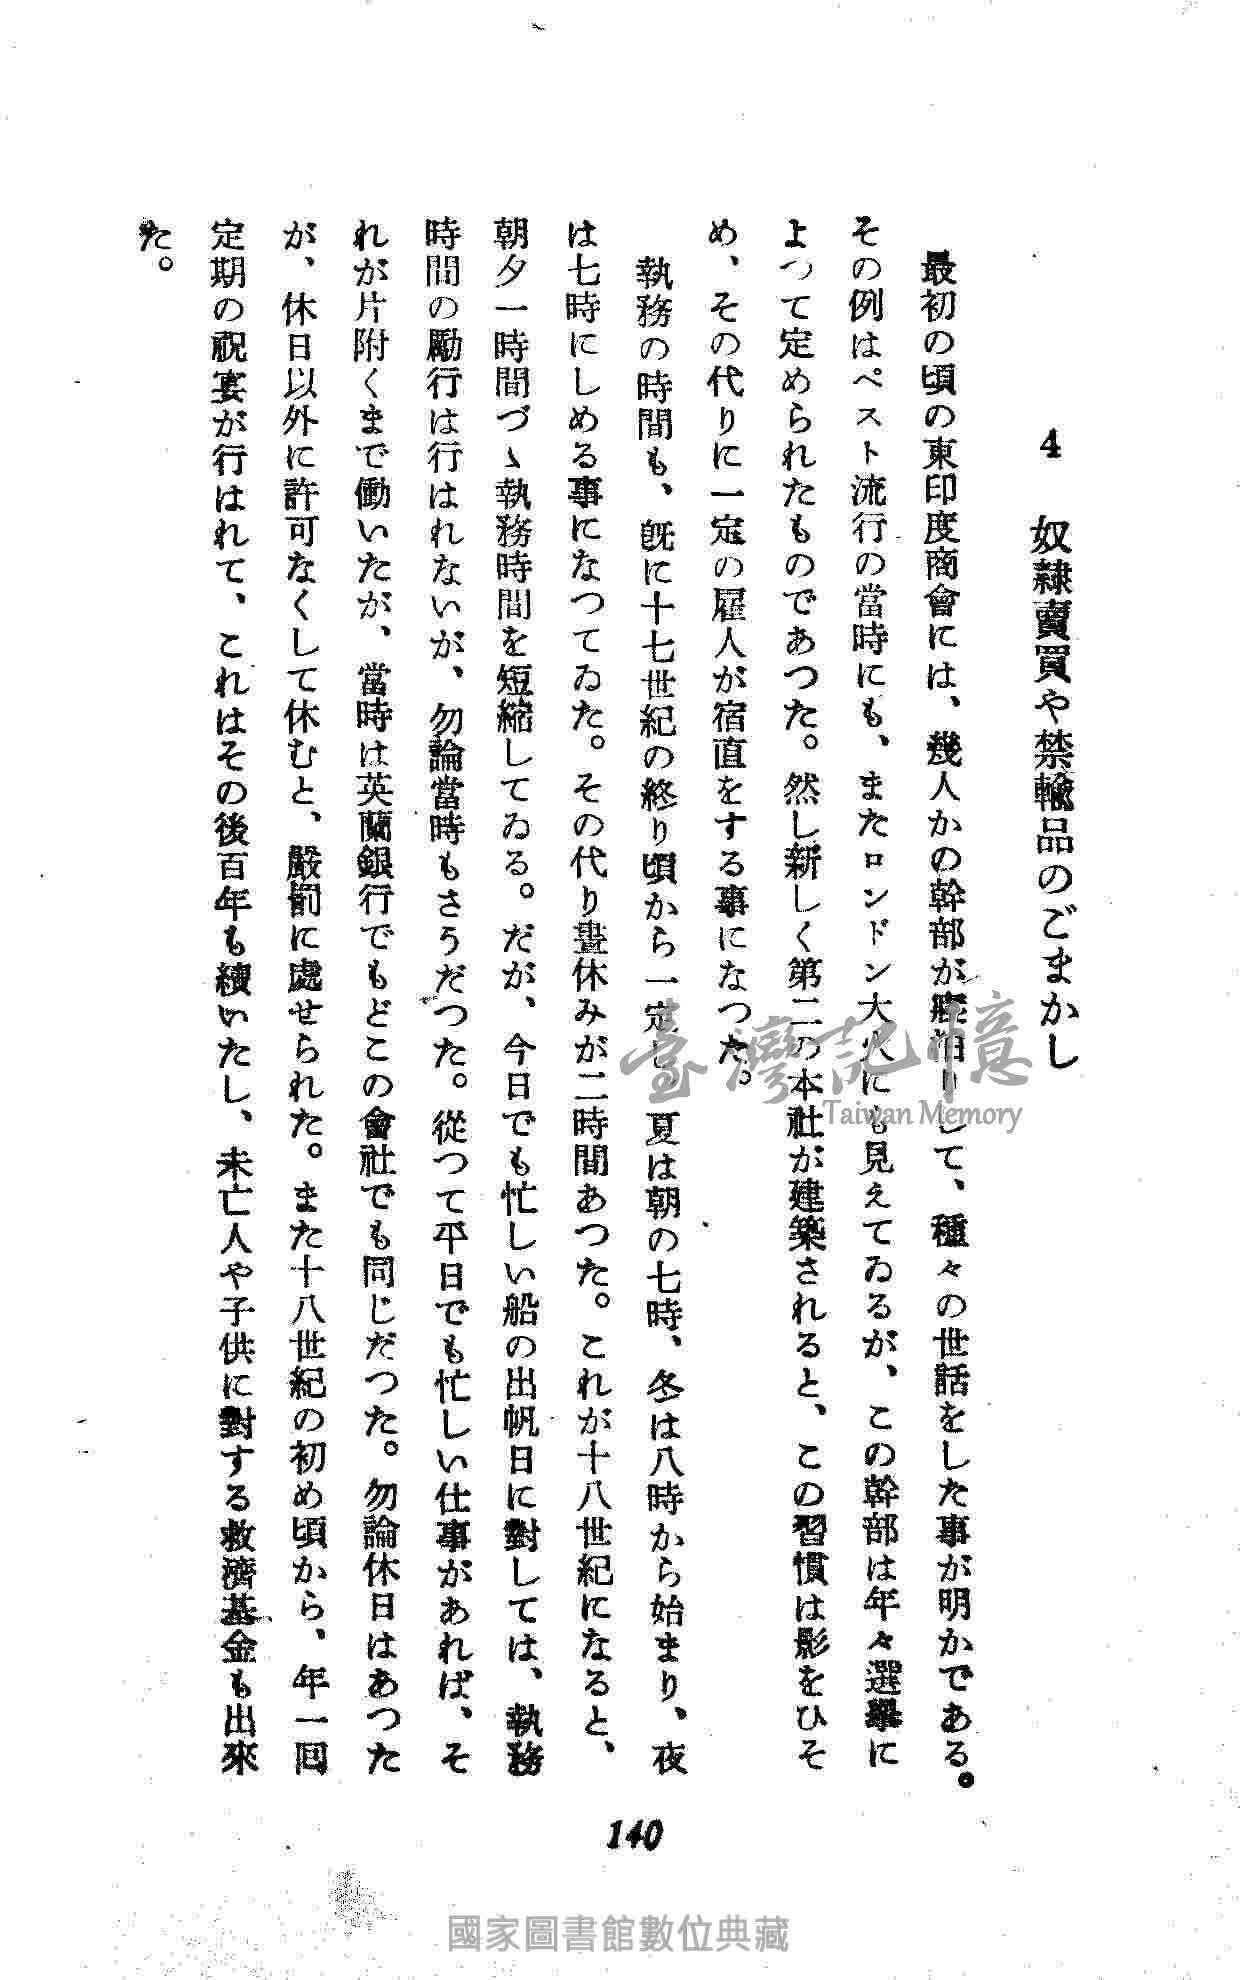 4 奴隷賣買や禁輸品のごまかし
最初の頃の東印度商會には、幾人かの幹部が寢泊りして、種々の世話をした事が明かである。
その例はペスト流行の當時にも、またロンドン大火にも見えてゐるが、この幹部は年々選擧に
よつて定められたものであつた。然し新しく第二の本社が建築されると、この習慣は影をひそ
め、その代りに一定の雇人が宿直をする事になつた。
執務の時間も、既に十七世紀の終り頃から一定し 夏は朝の七時、冬は八時から始まり、夜
は七時にしめる事になつてゐた。その代り晝休みが二時間あつた。これが十八世紀になると、
朝夕一時間づゝ執務時間を短縮してゐる。だが、今日でも忙しい船の出帆日に對しては、執務
時間の勵行は行はれないが、勿論當時もさうだつた。從つて平日でも忙しい仕事があれば、そ
れが片附くまで働いたが、當時は英蘭銀行でもどこの會社でも同じだつた。勿論休日はあつた
が、休日以外に許可なくして休むと、嚴罰に處せられた。また十八世紀の初め頃から、年一回
定期の祝宴が行はれて、これはその後百年も續いたし、未亡人や子供に對する救濟基金も出來
た。
140
臺灣記憶
Taiwan Memory
國家圖書館數位典藏